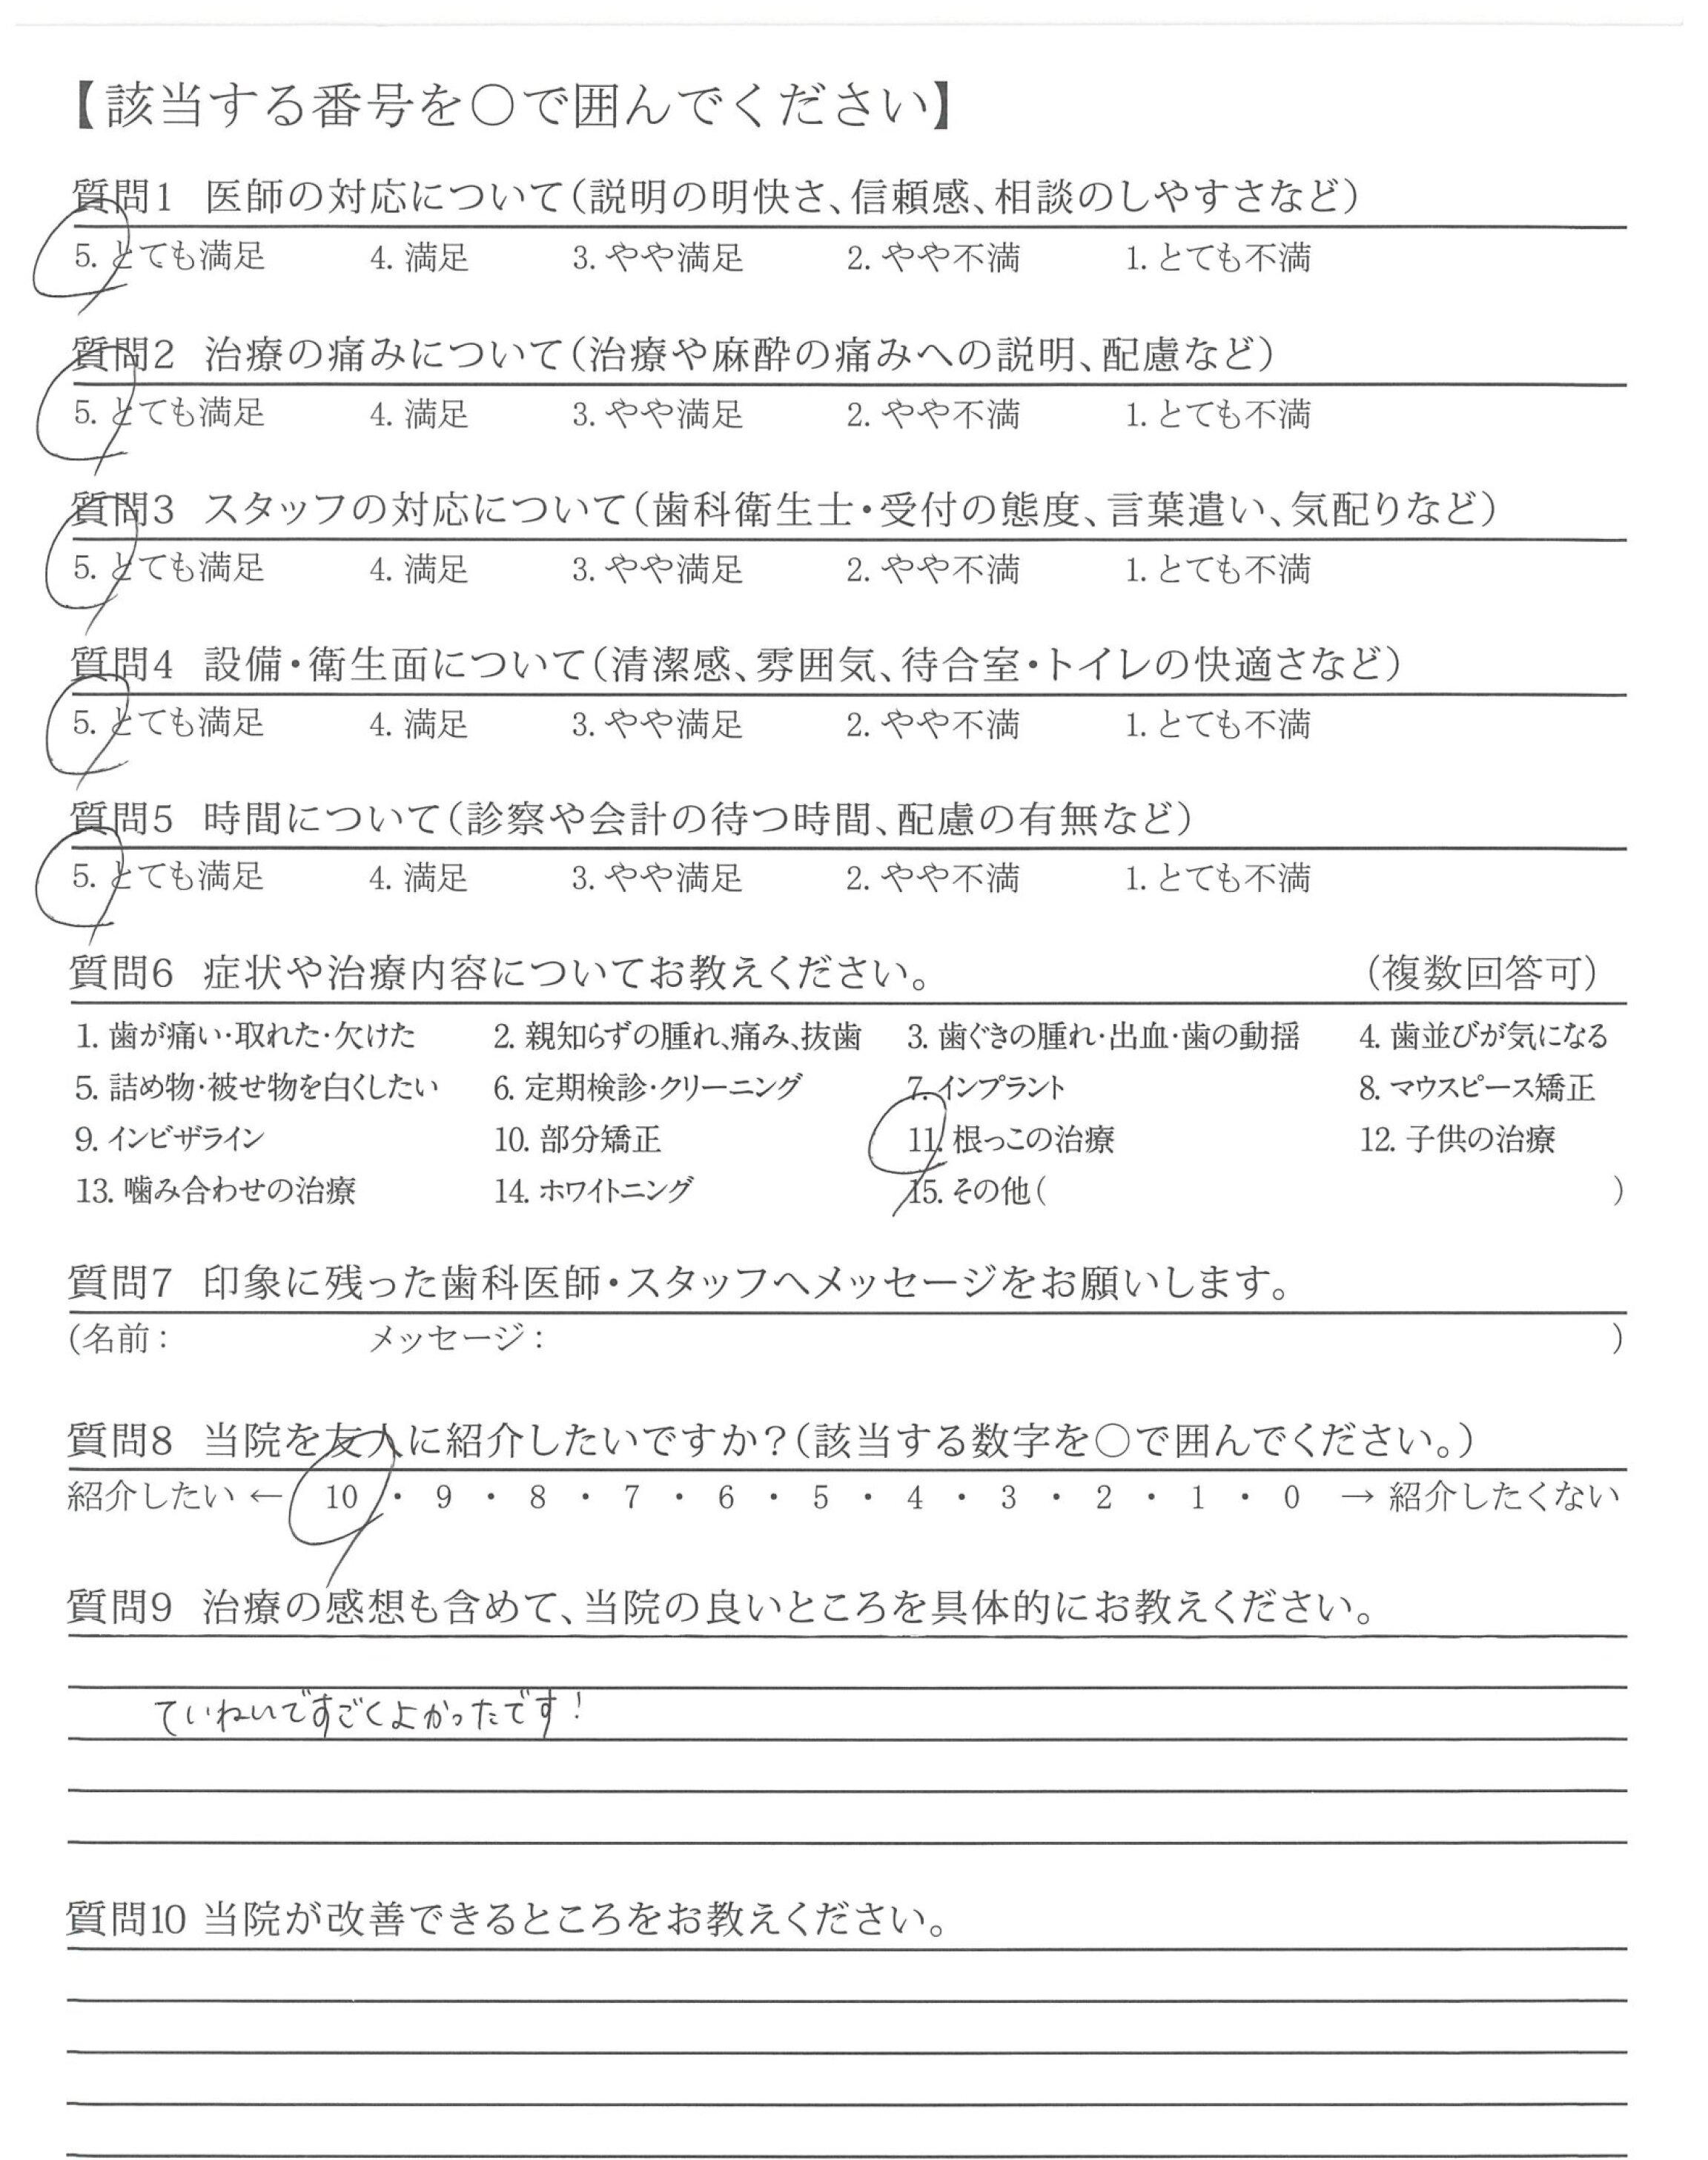 【該当する番号を○で囲んでください】
質問1 医師の対応について(説明の明快さ、信頼感、相談のしやすさなど)
5. とても満足 4. 満足 3. やや満足 2. やや不満 1. とても不満
質問2 治療の痛みについて(治療や麻酔の痛みへの説明、配慮など)
5. とても満足 4. 満足 3. やや満足 2. やや不満 1. とても不満
質問3 スタッフの対応について(歯科衛生士・受付の態度、言葉遣い、気配りなど)
5. とても満足 4. 満足 3. やや満足 2. やや不満 1. とても不満
質問4 設備・衛生面について(清潔感、雰囲気、待合室・トイレの快適さなど)
5. とても満足 4. 満足 3. やや満足 2. やや不満 1. とても不満
質問5 時間について(診察や会計の待つ時間、配慮の有無など)
5. とても満足 4. 満足 3. やや満足 2. やや不満 1. とても不満
質問6 症状や治療内容についてお教えください。 (複数回答可)
1. 歯が痛い・取れた・欠けた 2. 親知らずの腫れ、痛み、抜歯 3. 歯ぐきの腫れ・出血・歯の動揺 4. 歯並びが気になる
5. 詰め物・被せ物を白くしたい 6. 定期検診・クリーニング 7. インプラント 8. マウスピース矯正
9. インビザライン 10. 部分矯正 11. 根っこの治療 12. 子供の治療
13. 噛み合わせの治療 14. ホワイトニング 15. その他( )
質問7 印象に残った歯科医師・スタッフへメッセージをお願いします。
(名前: メッセージ: )
質問8 当院を友人に紹介したいですか?(該当する数字を○で囲んでください。)
紹介したい ← 10 ・ 9 ・ 8 ・ 7 ・ 6 ・ 5 ・ 4 ・ 3 ・ 2 ・ 1 ・ 0 → 紹介したくない
質問9 治療の感想も含めて、当院の良いところを具体的にお教えください。
ていねいですごくよかったです!
質問10 当院が改善できるところをお教えください。